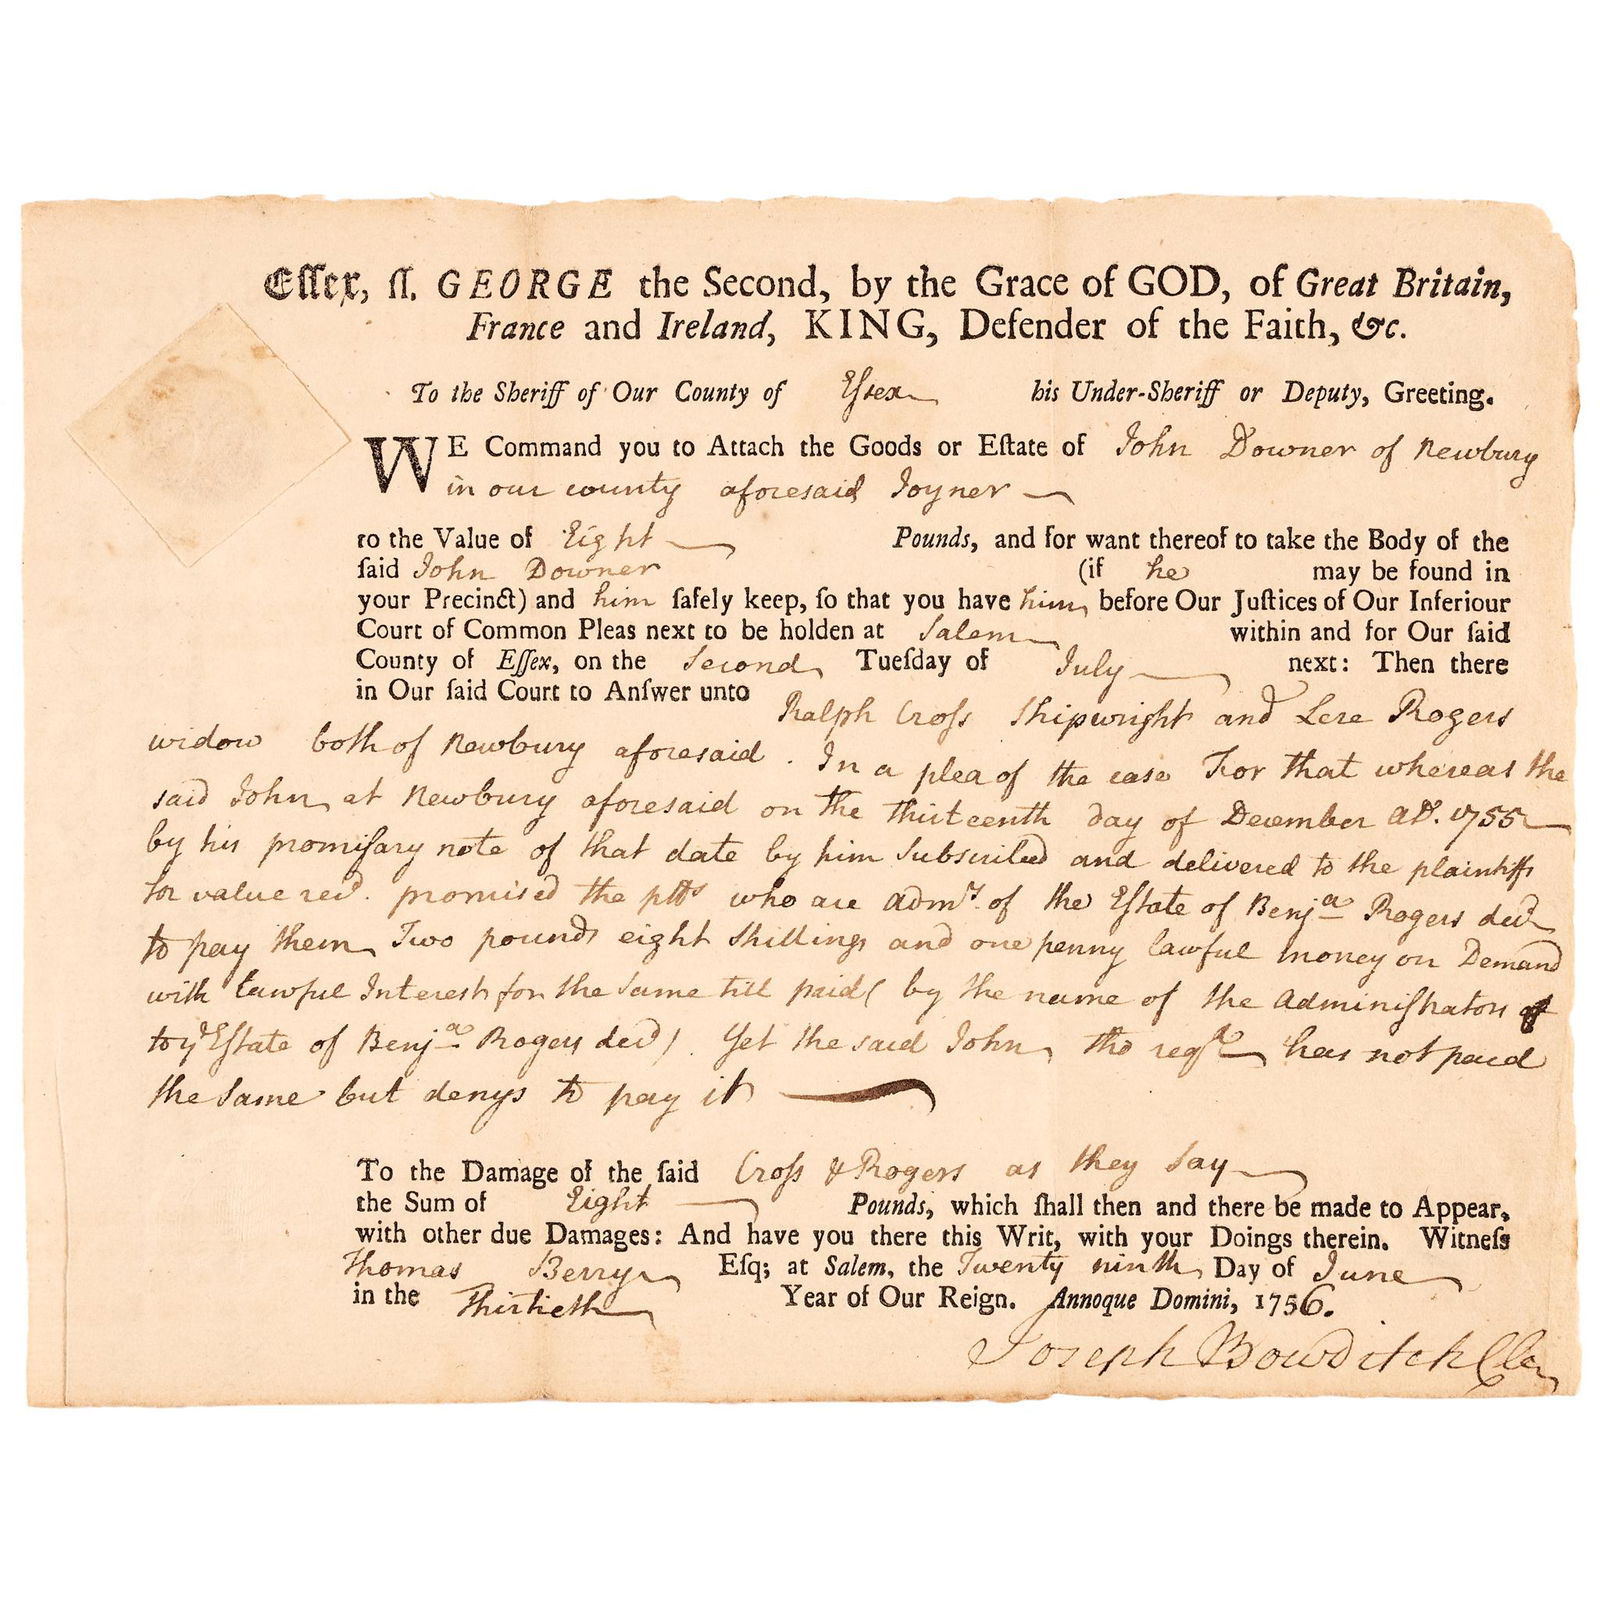 Eſſex, ſſ. GEORGE the Second, by the Grace of GOD, of Great Britain,
France and Ireland, KING, Defender of the Faith, &c.
To the Sheriff of Our County of Eſsex his Under-Sheriff or Deputy, Greeting.
WE Command you to Attach the Goods or Eſtate of John Downer of Newbury
in our county aforesaid Joyner
to the Value of Eight Pounds, and for want thereof to take the Body of the
ſaid John Downer (if he may be found in
your Precinct) and him ſafely keep, ſo that you have him before Our Juſtices of Our Inferiour
Court of Common Pleas next to be holden at Salem within and for Our ſaid
County of Eſſex, on the Second Tueſday of July next: Then there
in Our ſaid Court to Anſwer unto Ralph Croſs Shipwright and Rogers
widow both of Newbury aforesaid. In a plea of the case For that whereas the
said John at Newbury aforesaid on the thirteenth day of December AD. 1755
by his promiſary note of that date by him Subscribed and delivered to the plaintiffs
for value recd. promised the pltfs who are Admrs. of the Eſtate of Benja Rogers decd
to pay them Two pounds eight Shillings and one penny lawful money on Demand
with lawful Interest for the Same till paid ( by the name of the Adminiſtrators
to ye Eſtate of Benja Rogers decd ) . Yet the said John, tho reqd has not paid
the Same but denys to pay it
To the Damage of the ſaid Croſs & Rogers as they Say
the Sum of Eight Pounds, which ſhall then and there be made to Appear,
with other due Damages: And have you there this Writ, with your Doings therein. Witneſs
Thomas Berry Eſq; at Salem, the Twenty ninth Day of June
in the Thirtieth Year of Our Reign. Annoque Domini, 1756.
Joseph Bowditch Cler